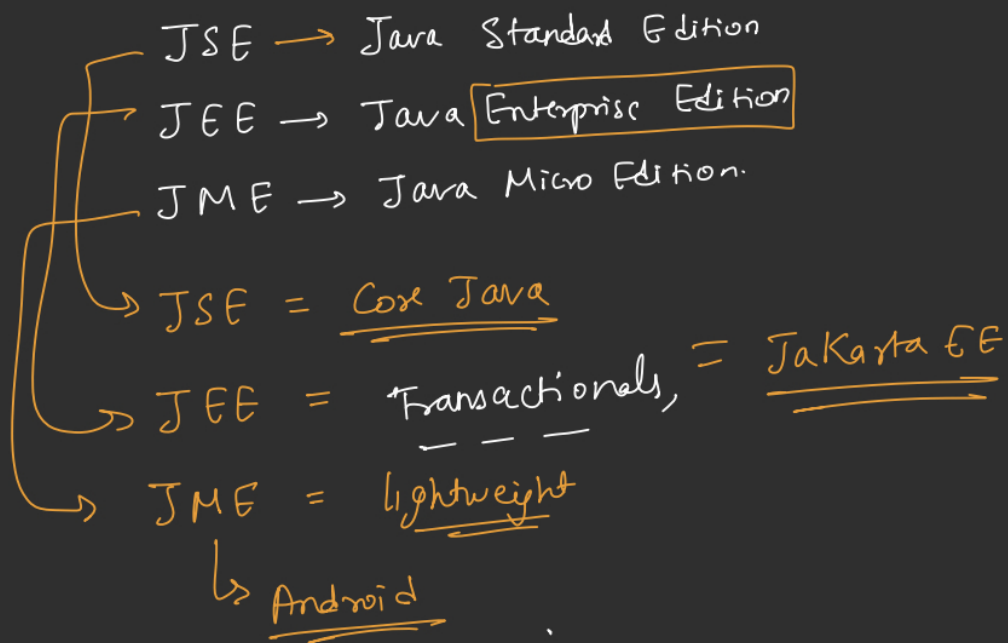 JSE → Java Standard Edition
JEE → Java Enterprise Edition
JME → Java Micro Edition.
JSE = Core Java
JEE = Transactionals, = Jakarta EE
JME = lightweight
Android